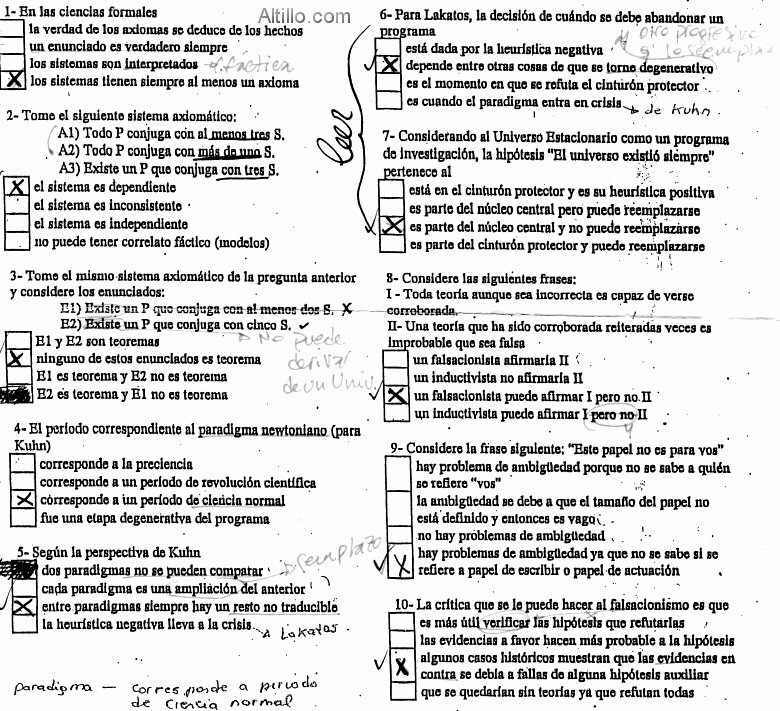 Altillo.com
1- En las ciencias formales
la verdad de los axiomas se deduce de los hechos
un enunciado es verdadero siempre
los sistemas son interpretados → factica
X los sistemas tienen siempre al menos un axioma
2- Tome el siguiente sistema axiomático:
A1) Todo P conjuga con al menos tres S.
A2) Todo P conjuga con más de uno S.
A3) Existe un P que conjuga con tres S.
X el sistema es dependiente
el sistema es inconsistente
el sistema es independiente
no puede tener correlato fáctico (modelos)
3- Tome el mismo sistema axiomático de la pregunta anterior
y considere los enunciados:
E1) Existe un P que conjuga con al menos dos S. X
E2) Existe un P que conjuga con cinco S. ✓
→ No puede
derivar
de un Univ.
E1 y E2 son teoremas
X ninguno de estos enunciados es teorema
E1 es teorema y E2 no es teorema
E2 es teorema y E1 no es teorema
4- El período correspondiente al paradigma newtoniano (para
Kuhn)
corresponde a la preciencia
corresponde a un período de revolución científica
X corresponde a un período de ciencia normal
fue una etapa degenerativa del programa
5- Según la perspectiva de Kuhn
dos paradigmas no se pueden comparar
→ reemplazo
cada paradigma es una ampliación del anterior
X entre paradigmas siempre hay un resto no traducible
la heurística negativa lleva a la crisis → Lakatos.
paradigma — corresponde a periodo
de ciencia normal
6- Para Lakatos, la decisión de cuándo se debe abandonar un
programa
y otro progresivo
y lo reemplaza
está dada por la heurística negativa
X depende entre otras cosas de que se torne degenerativo
es el momento en que se refuta el cinturón protector
es cuando el paradigma entra en crisis → de Kuhn.
leer
7- Considerando al Universo Estacionario como un programa
de investigación, la hipótesis "El universo existió siempre"
pertenece al
está en el cinturón protector y es su heurística positiva
es parte del núcleo central pero puede reemplazarse
X es parte del núcleo central y no puede reemplazarse
es parte del cinturón protector y puede reemplazarse
8- Considere las siguientes frases:
I - Toda teoría aunque sea incorrecta es capaz de verse
corroborada.
II- Una teoría que ha sido corroborada reiteradas veces es
improbable que sea falsa
un falsacionista afirmaría II
un inductivista no afirmaría II
X un falsacionista puede afirmar I pero no II
un inductivista puede afirmar I pero no II
y
9- Considere la frase siguiente: "Este papel no es para vos"
hay problema de ambigüedad porque no se sabe a quién
se refiere "vos"
la ambigüedad se debe a que el tamaño del papel no
está definido y entonces es vago
no hay problemas de ambigüedad
X hay problemas de ambigüedad ya que no se sabe si se
refiere a papel de escribir o papel de actuación
10- La crítica que se le puede hacer al falsacionismo es que
es más útil verificar las hipótesis que refutarlas
las evidencias a favor hacen más probable a la hipótesis
X algunos casos históricos muestran que las evidencias en
contra se debía a fallas de alguna hipótesis auxiliar
que se quedarían sin teorías ya que refutan todas